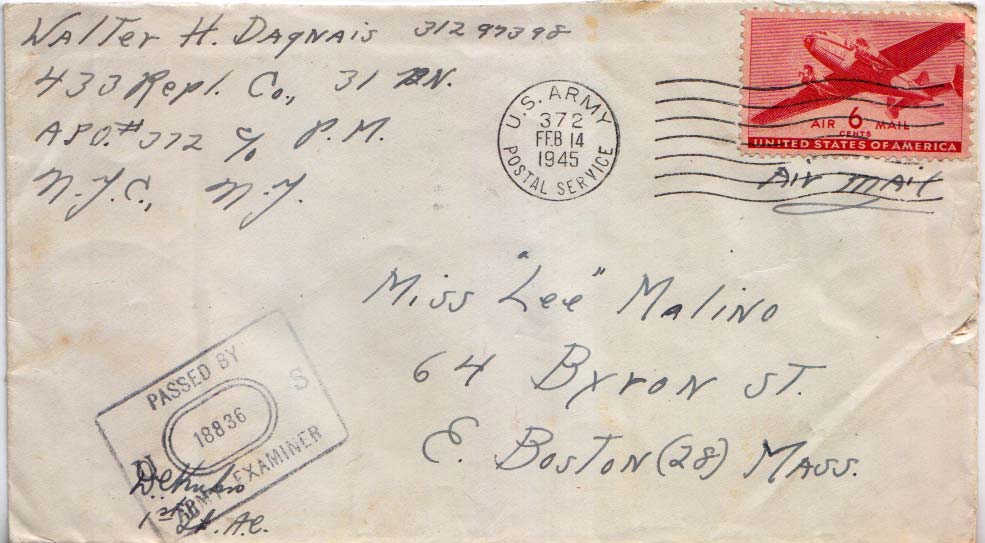 Walter H. Dagnais 31297398
433 Repl. Co., 31 BN.
A.P.O. # 372 c/o P.M.
N.Y.C., N.Y.
U.S. ARMY
372
FEB 14
1945
POSTAL SERVICE
AIR 6 MAIL
CENTS
UNITED STATES OF AMERICA
Air Mail
Miss "Lee" Malino
64 Byron St.
E. Boston (28) Mass.
PASSED BY
U S
18836
ARMY EXAMINER
1st Lt. A.C.